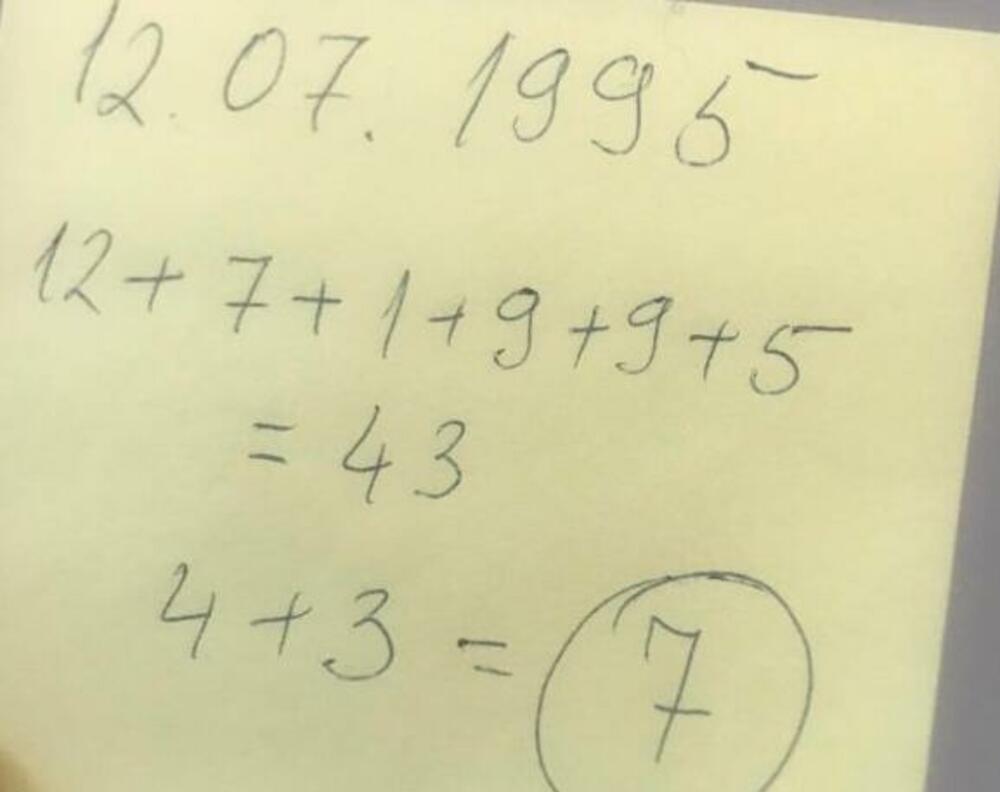 12.07.1995
12+7+1+9+9+5
= 43
4+3 = 7